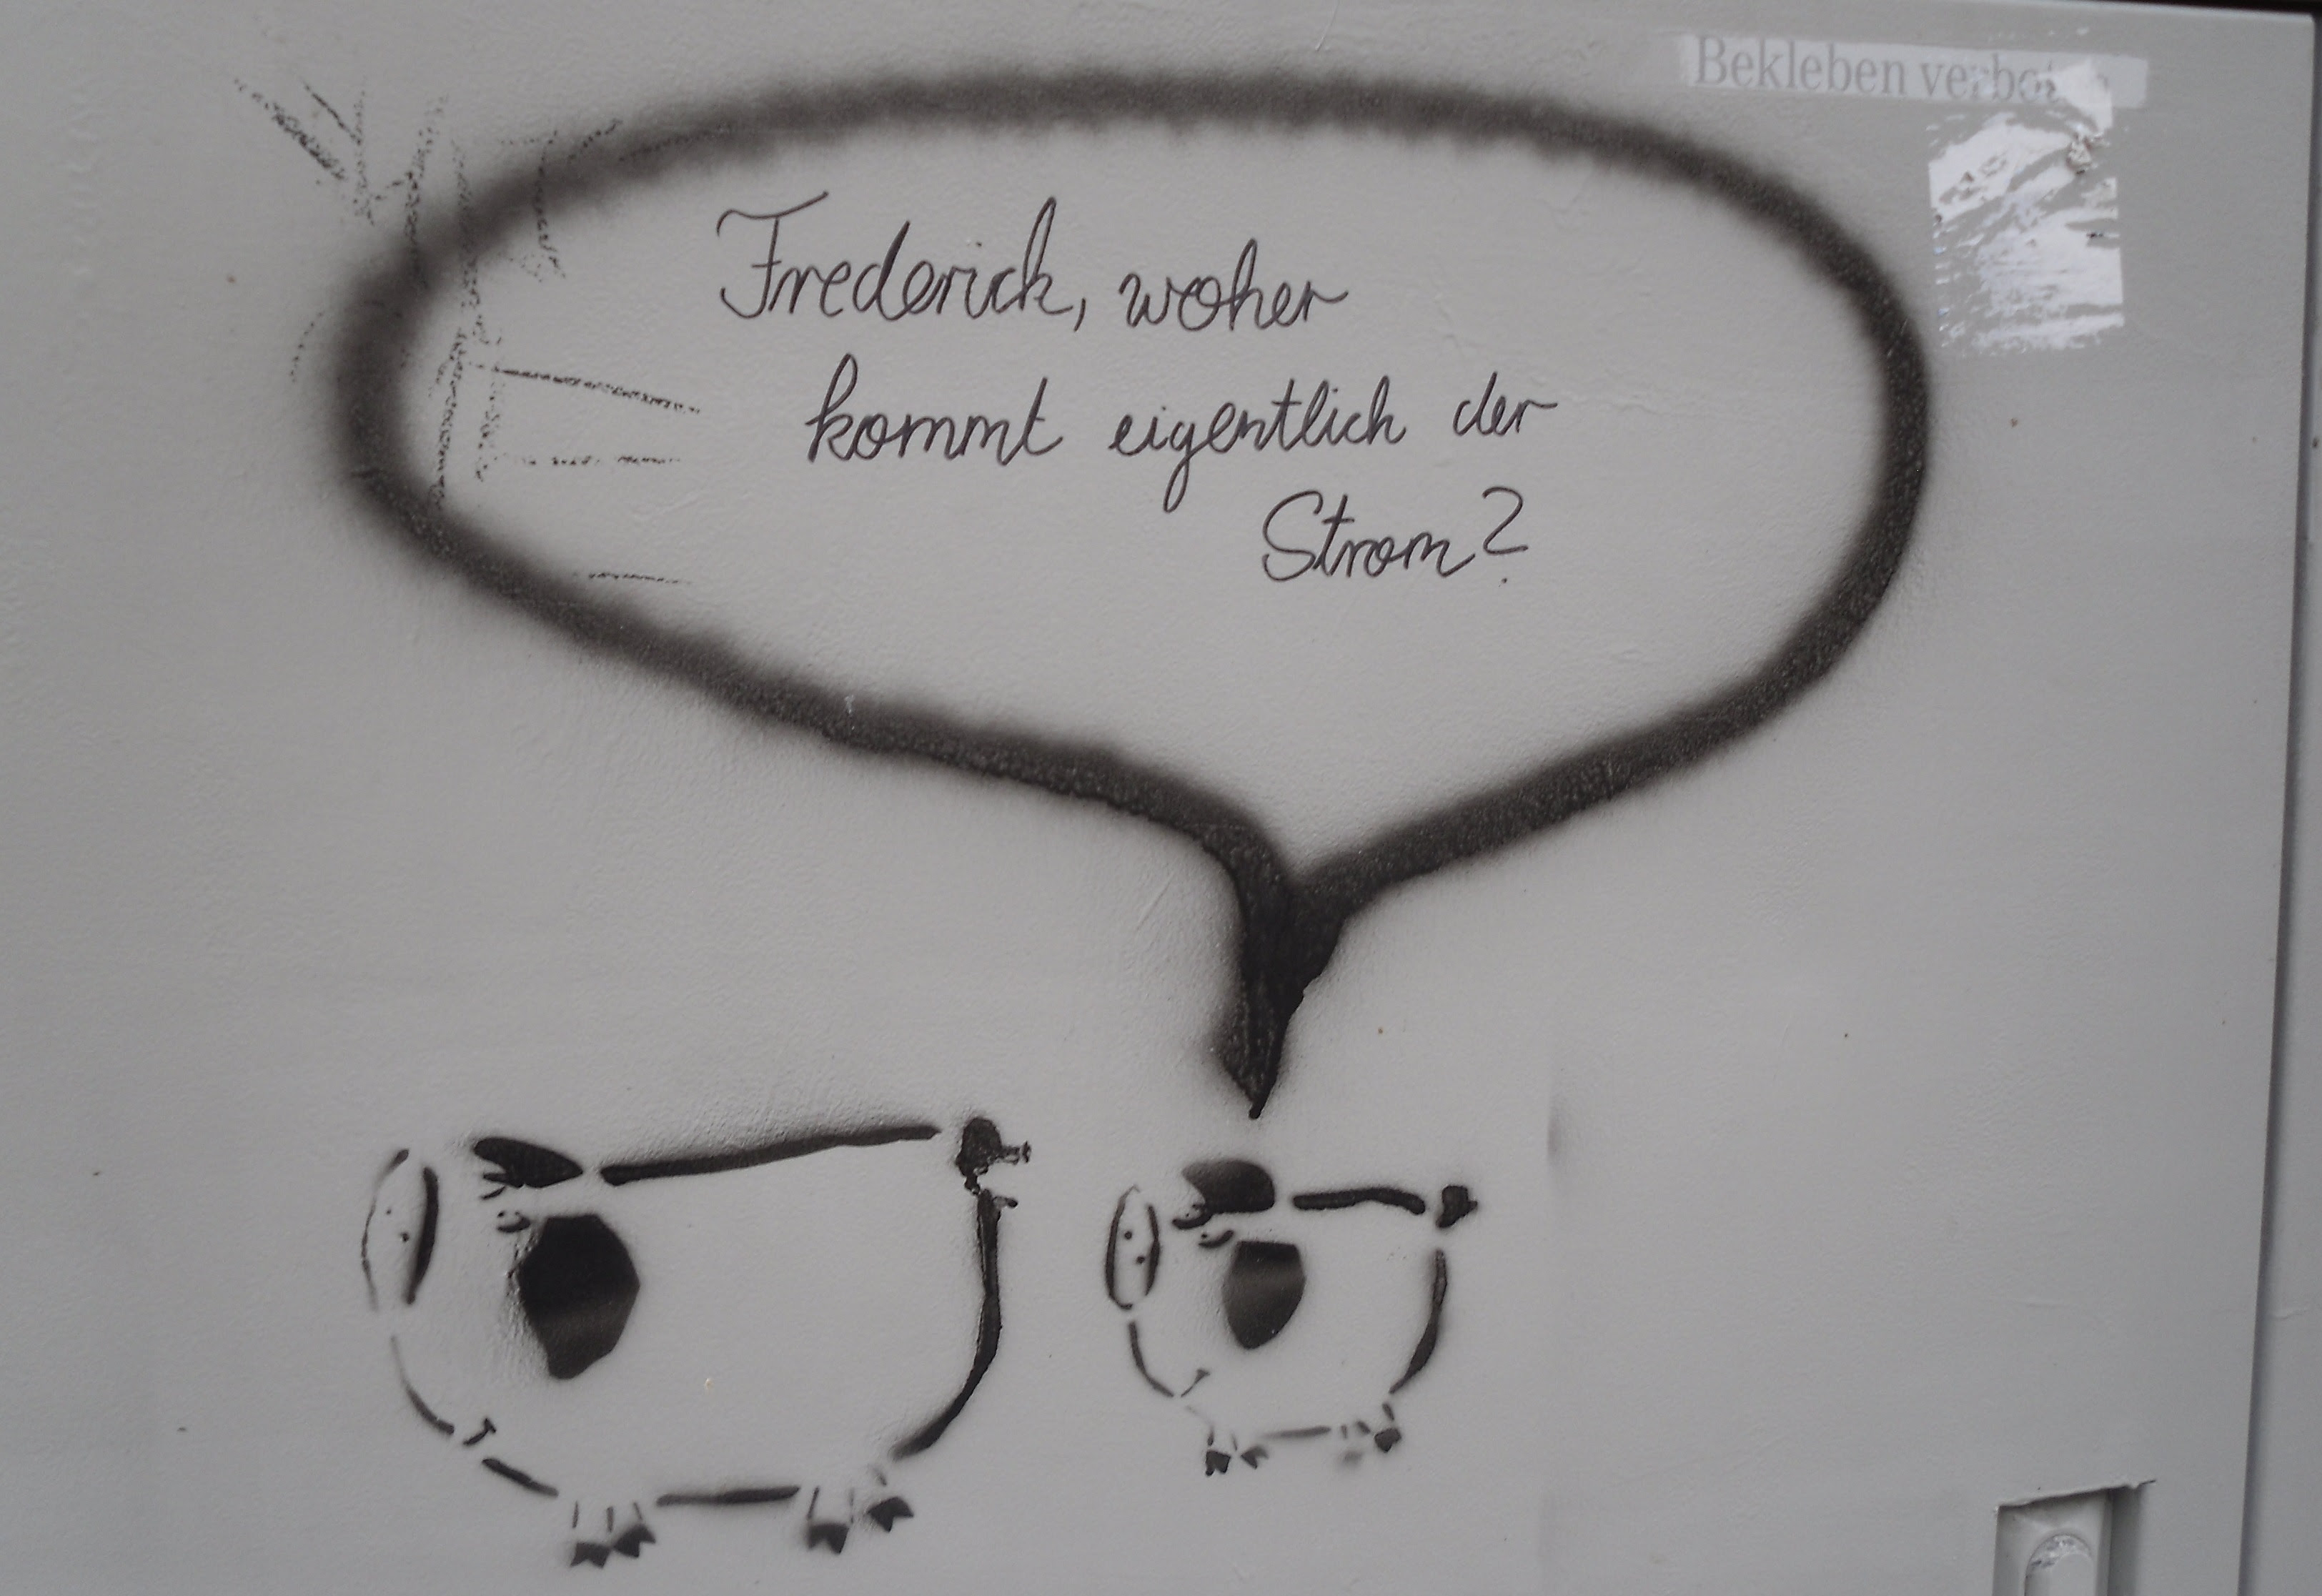 Bekleben verboten
Frederick, woher
kommt eigentlich der
Strom?